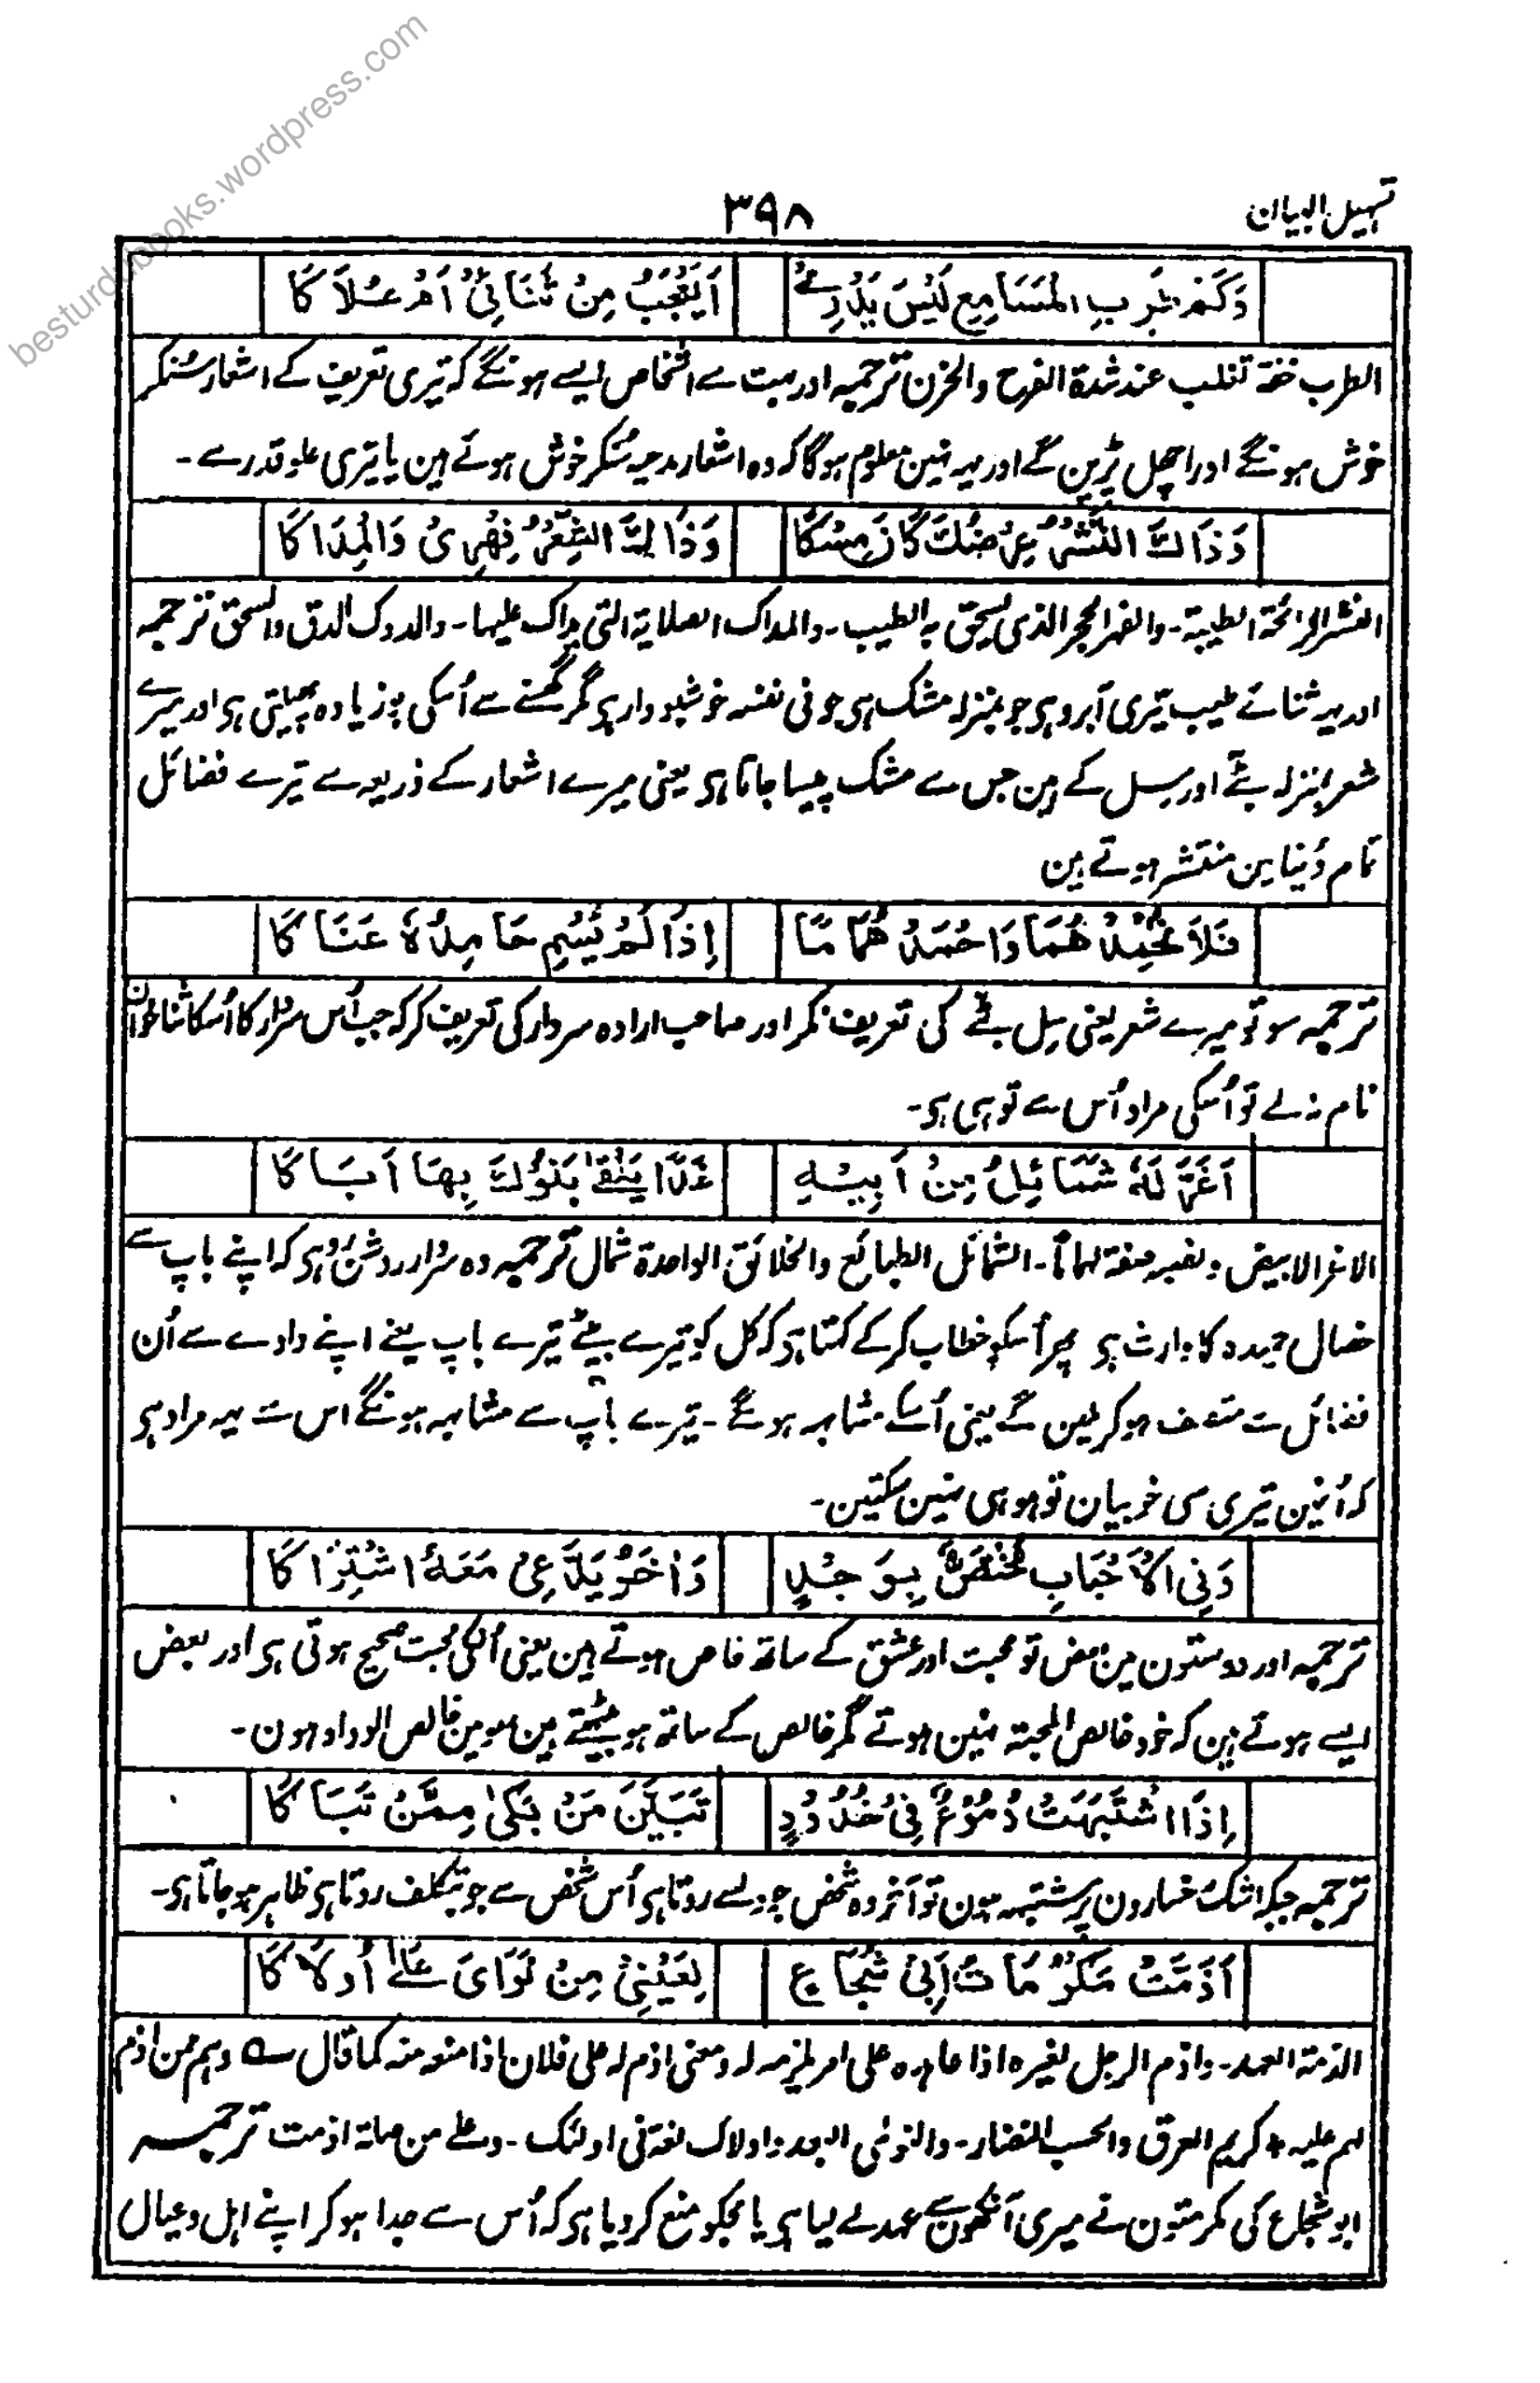 besturdubooks.wordpress.com
تسہیل البیان
۳۹۸
وَكَمْ طَرِبِ الْمَسَامِعِ لَيْسَ يَدْرِيْ اَيَعْجَبُ مِنْ ثَنَائِيْ اَمْ عُلَاكَا
الطرب خفۃ تغلب عند شدۃ الفرح والحزن ترجمہ اور بہت سے اشخاص ایسے ہونگے کہ تیری تعریف کے اشعار سنکر
خوش ہونگے اور اچھل پڑین گے اور یہ نہین معلوم ہوگا کہ وہ اشعار مدحیہ سُنکر خوش ہوئے ہین یا تیری علو قدر سے۔
وَذَاكَ النَّشْرُ عِرْضُكَ كَانَ مِسْكًا وَذَاكَ الشِّعْرُ فِهْرِىْ وَالْمَدَاكَا
النشر الرائحۃ الطیبۃ۔ والفہر الحجر الذی یسحق بہ الطیب۔ والمداک الصلایۃ التی یداک علیہا۔ والدوک الدق والسحق ترجمہ
اور یہ ثنائے طیب تیری آبرو ہی جو بمنزلہ مشک ہی جو فی نفسہ خوشبودار ہی مگر گھسنے سے اُسکی بو زیادہ پھیلتی ہی اور میرے
شعر بمنزلہ بٹے اور سل کے ہین جس سے مشک پیسا جاتا ہی یعنی میرے اشعار کے ذریعہ سے تیرے فضائل
تمام دُنیا مین منتشر ہوتے ہین
فَلَا تَحْمَدْهُمَا وَاحْمَدْ هُمَامًا اِذَا لَمْ يُسْمِ حَامِدُهٗ عَنَاكَا
ترجمہ سو تو میرے شعر یعنی سِل بٹے کی تعریف نکر اور صاحب ارادہ سردار کی تعریف کر کہ جب اُس سردار کا اُسکا ثنا خوان
نام نہ لے تو اُسکی مراد اُس سے تو ہی ہی۔
اَغَرَّ لَهٗ شَمَائِلُ مِنْ اَبِيْهِ غَدًا يَلْقٰى بَنُوْكَ بِهَا اَبَاكَا
الاغر الابیض و نصبہ صفۃ لہمامًا۔ الشمائل الطبائع والخلائق الواحدۃ شمال ترجمہ وہ سردار روشن رو ہی کہ اپنے باپ سے
خصال حمیدہ کا وارث ہی پھر اُسکو خطاب کرکے کہتا ہی کہ کل کو تیرے بیٹے تیرے باپ یعنے اپنے دادے سے اُن
فضائل سے متصف ہوکر ملین گے یعنی اُسکے مشابہ ہونگے۔ تیرے باپ سے مشابہ ہونگے اس سے یہ مراد ہی
کہ اُنمین تیری سی خوبیان تو ہو ہی نہین سکتین۔
وَفِى الْاَحْبَابِ مُخْتَصٌّ بِوَجْدٍ وَاٰخَرُ يَدَّعِىْ مَعَهُ اشْتِرَاكَا
ترجمہ اور دوستون مین بعض تو محبت اور عشق کے ساتھ خاص ہوتے ہین یعنی اُنکی محبت صحیح ہوتی ہی اور بعض
ایسے ہوتے ہین کہ خود خالص المحبتہ نہین ہوتے مگر خالص کے ساتھ ہو بیٹھتے ہین سو مین خالص الوداد ہون۔
اِذَا اشْتَبَهَتْ دُمُوْعٌ فِىْ خُدُوْدٍ تَبَيَّنَ مَنْ بَكٰى مِمَّنْ تَبَاكَا
ترجمہ جبکہ اشک رخسارون پر مشتبہ ہون تو آخر وہ شخص جو دلسے روتا ہی اُس شخص سے جو بتکلف روتا ہی ظاہر ہو جاتا ہی۔
اَذَمَّتْ مَكْرُمَاتُ اَبِىْ شُجَاعٍ لِعَيْنِىْ مِنْ نَوَاىَ عَلٰى اُولَاكَا
الذمۃ العہد۔ واذم الرجل لغیرہ اذا عاہدہ علی امر یلزمہ لہ ومعنی اذم لہ علی فلان اذا منعہ منہ کما قال سے وہم ممن اذم
لہم علیہ * کریم العرق والحسب النضار۔ والنوٰی البعد و اولاک لغۃ فی اولئک۔ وعلے من صلۃ اذمت ترجمہ
ابو شجاع کی مکرمتون نے میری آنکھون سے عہد لے لیا ہی یا مجکو منع کر دیا ہی کہ اُس سے جدا ہوکر اپنے اہل و عیال